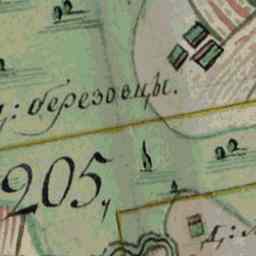 д: березовцы.
205,
д: